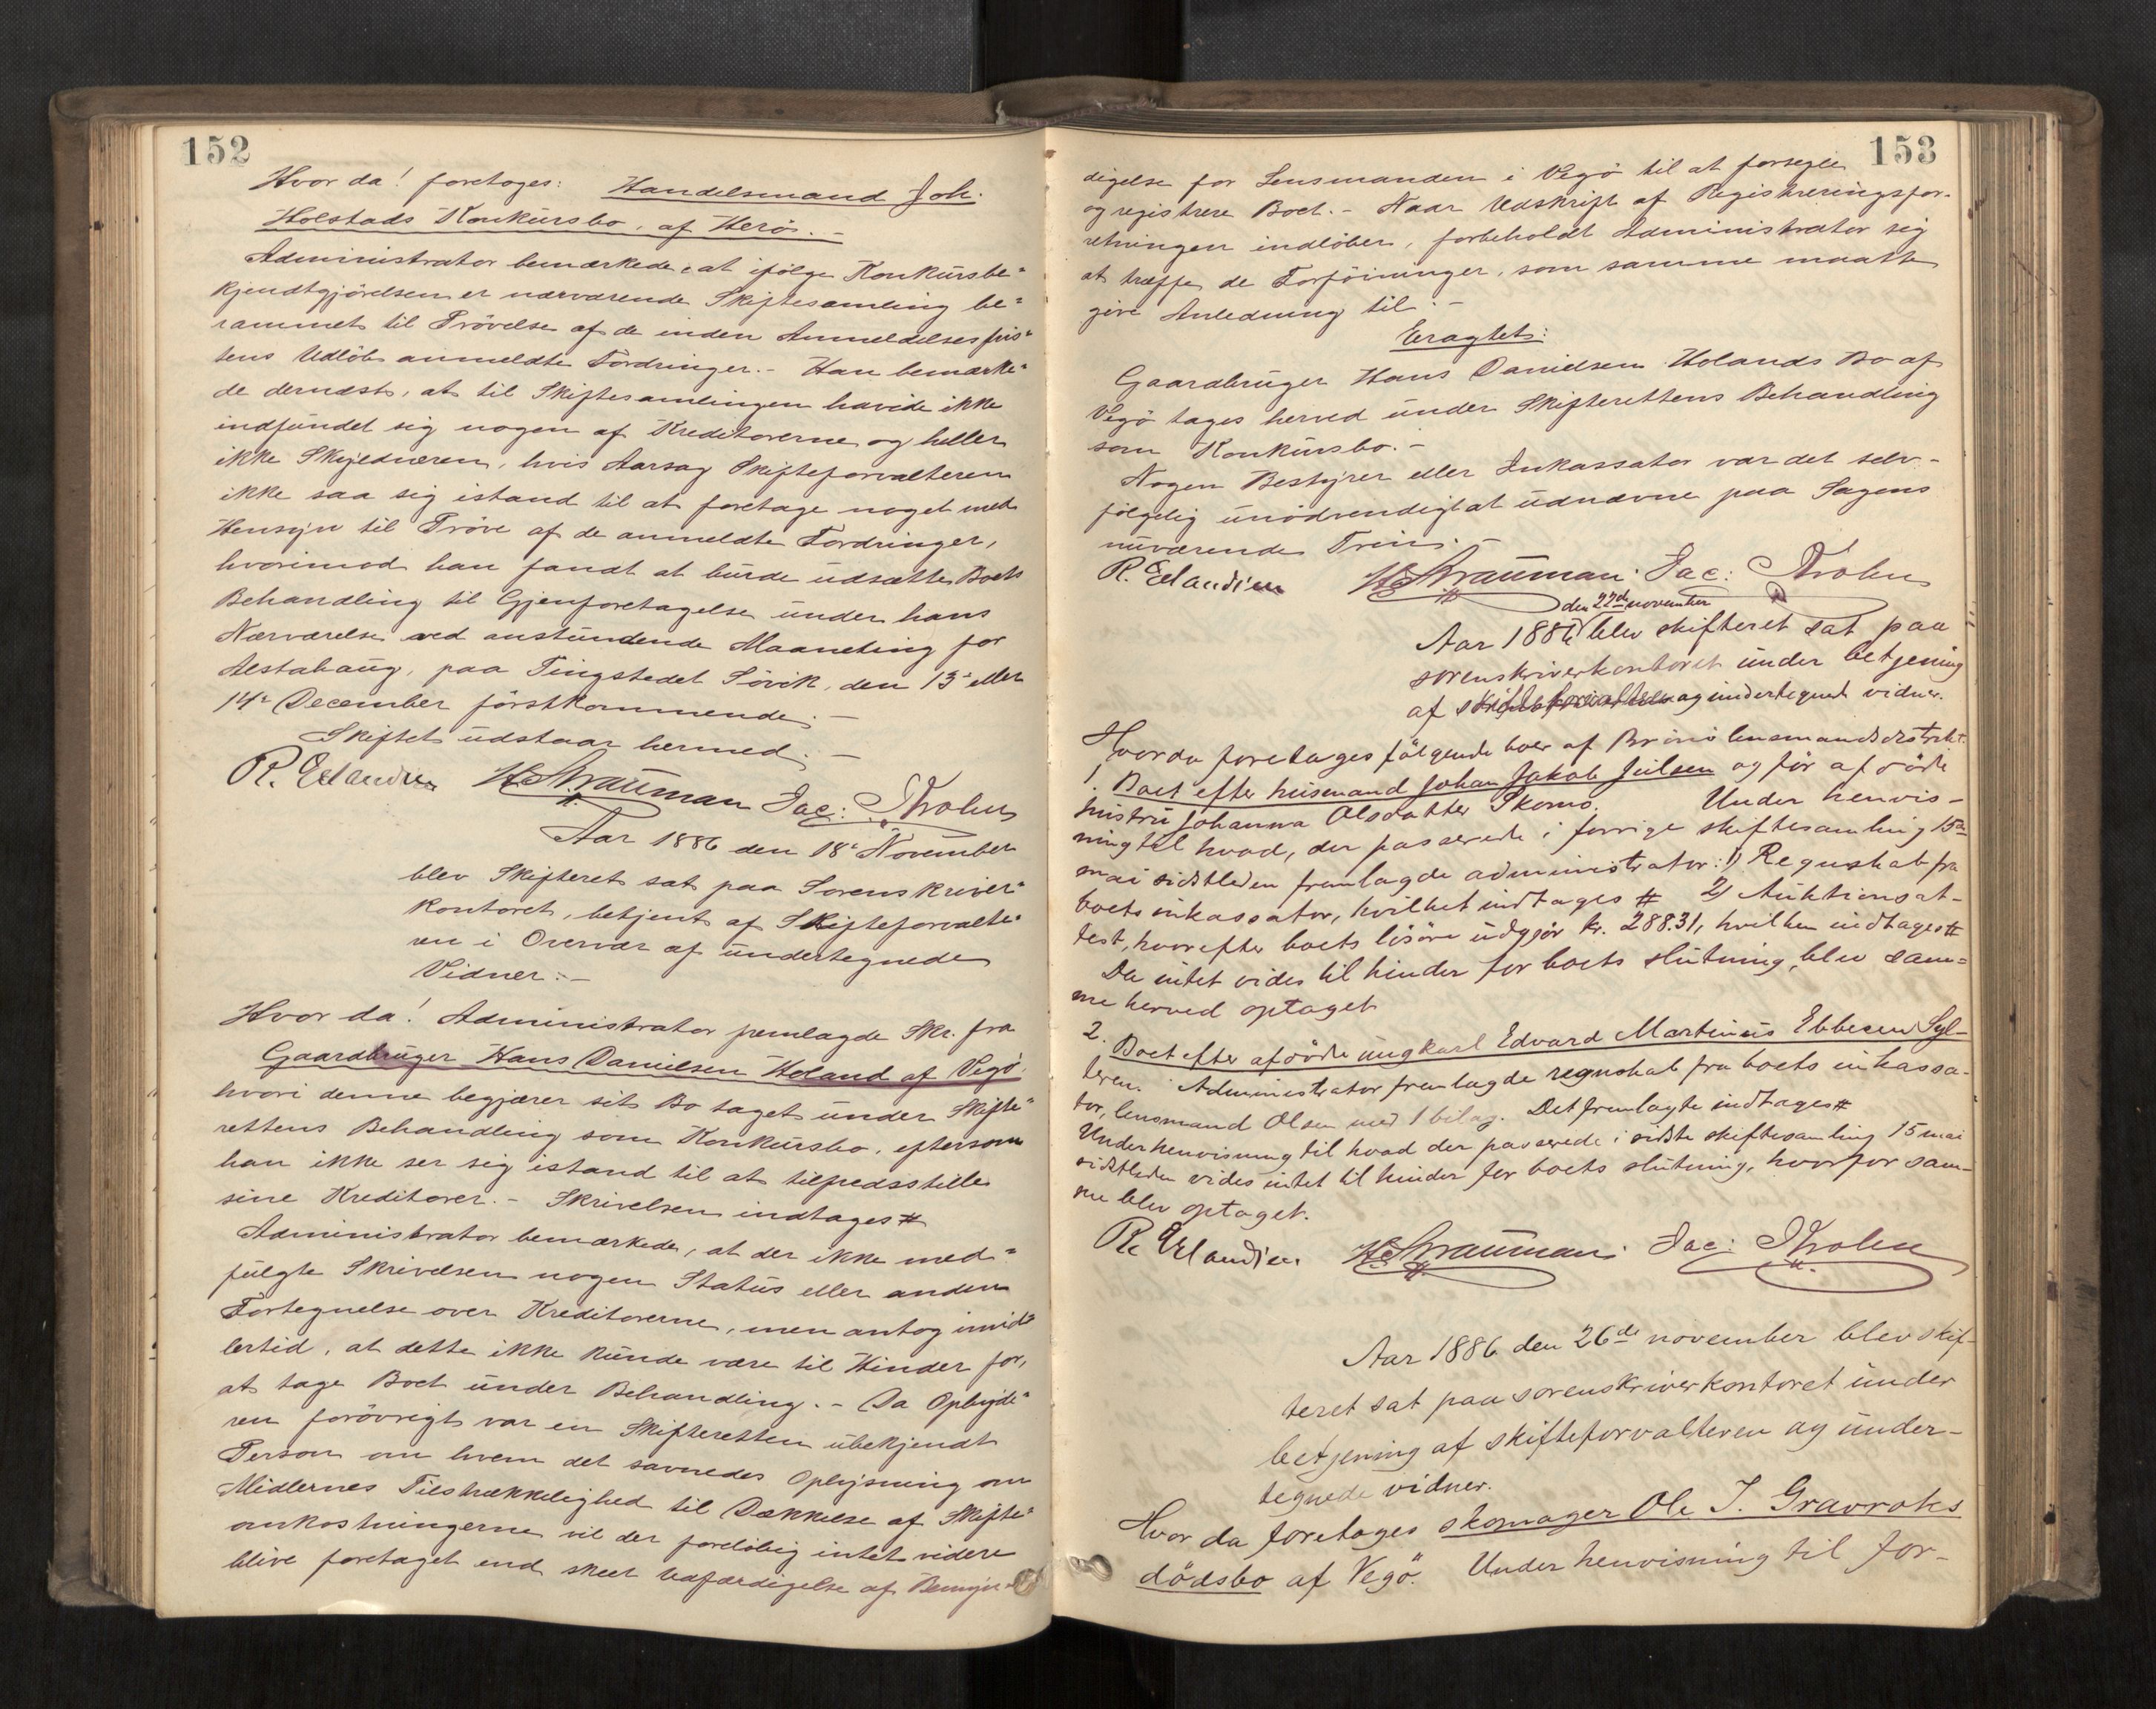 152
Hvor da! foretoges: Handelsmand Joh.
Holstads Konkursbo, af Herö. –
Administrator bemærkede, at ifölge Konkursbe-
kjendtgjörelsen er nærværende Skiftesamling be-
rammet til Prövelse af de inden Anmeldelsesfris-
tens Udlöb anmeldte Fordringer. – Han bemærke-
de dernæst, at til Skiftesamlingen havde ikke
indfundet sig nogen af Kreditorerne og heller
ikke Skyldneren, hvis Aarsag Skifteforvalteren
ikke saa sig istand til at foretage noget med
Hensyn til Pröve af de anmeldte Fordringer,
hvorimod han fandt at burde udsætte Boets
Behandling til Gjenforetagelse under hans
Nærværelse ved anstundende Maaneting for
Alstahaug, paa Tingstedet Sövik, den 13de eller
14de December förstkommende. –
Skiftet udstaar hermed. –
R. Erlandsen H. Strauman Jac: Tholn
Aar 1886 den 18de November
blev Skifteret sat paa Sorenskriver-
kontoret, betjent af Skifteforvalte-
ren i Overvær af undertegnede
Vidner: –
Hvor da! Administrator fremlagde Skr. fra
Gaardbruger Hans Danielsen Holand af Vegö,
hvori denne begjærer sit Bo taget under Skifte-
rettens Behandling som Konkursbo, eftersom
han ikke ser sig istand til at tilfredsstille
sine Kreditorer. – Skrivelsen indtages #
Administrator bemærkede, at der ikke med-
fulgte Skrivelsen nogen Status eller anden
Fortegnelse over Kreditorerne, men antog imid-
lertid, at dette ikke kunde være til Hinder for,
at tage Boet under Behandling. – Da Opbyde-
ren forövrigt var en Skifteretten ubekjendt
Person om hvem det savnedes Oplysning om
Midlernes Tilstrækkelighed til Dækkelse af Skifte-
omkostningerne vil der forelöbig intet videre
blive foretaget end skeet Udfærdigelse af Bemyn-
153
digelse for Lensmanden i Vegö til at forsegle
og registrere Boet. – Naar Udskrift af Registreringsfor-
retningen indlöber, forbeholdt Administrator sig
at træffe de Forföininger, som samme maatte
give Anledning til. –
Eragtet:
Gaardbruger Hans Danielsen Holands Bo af
Vegö tages herved under Skifterettens Behandling
som Konkursbo. –
Nogen Bestyrer eller Inkassator var det selv-
fölgelig unödvendigt at udnævne paa Sagens
nuværende Trin. –
R. Erlandsen H. Strauman Jac: Tholn
den 22de november
Aar 1886 blev skifteret sat paa
sorenskriverkontoret under betjening
af skifteforvalteren og undertegnede vidner.
Hvorda foretages fölgende boer af Brönö lensmandsdistrikt.
1. Boet efter husmand Johan Jakob Julsen og för afdöde
hustru Johanna Olsdatter Skomo. Under henvis-
ning til hvad, der passerede i forrige skiftesamling 15de
mai sidstleden fremlagde administrator: 1) Regnskab fra
boets inkassator, hvilket indtages # 2) Auktionsat-
test, hvorefter boets lösöre udgjör kr. 288.31, hvilken indtages #
Da intet vides til hinder for boets slutning, blev sam-
me herved optaget
2. Boet efter afdöde ungkarl Edvard Martinus Ebbesen Syl-
teren. Administrator fremlagde regnskab fra boets inkassa-
tor, lensmand Olsen med 1 bilag. Det fremlagte indtages #
Under henvisning til hvad der passerede i sidste skiftesamling 15 mai
sidstleden vides intet til hinder for boets slutning, hvorfor sam-
me blev optaget.
R. Erlandsen H. Strauman. Jac: Tholn
Aar 1886 den 26de november blev skif-
teret sat paa sorenskriverkontoret under
betjening af skifteforvalteren og under-
tegnede vidner.
Hvor da foretages skomager Ole J. Gravroks
dödsbo af Vegö. Under henvisning til for-